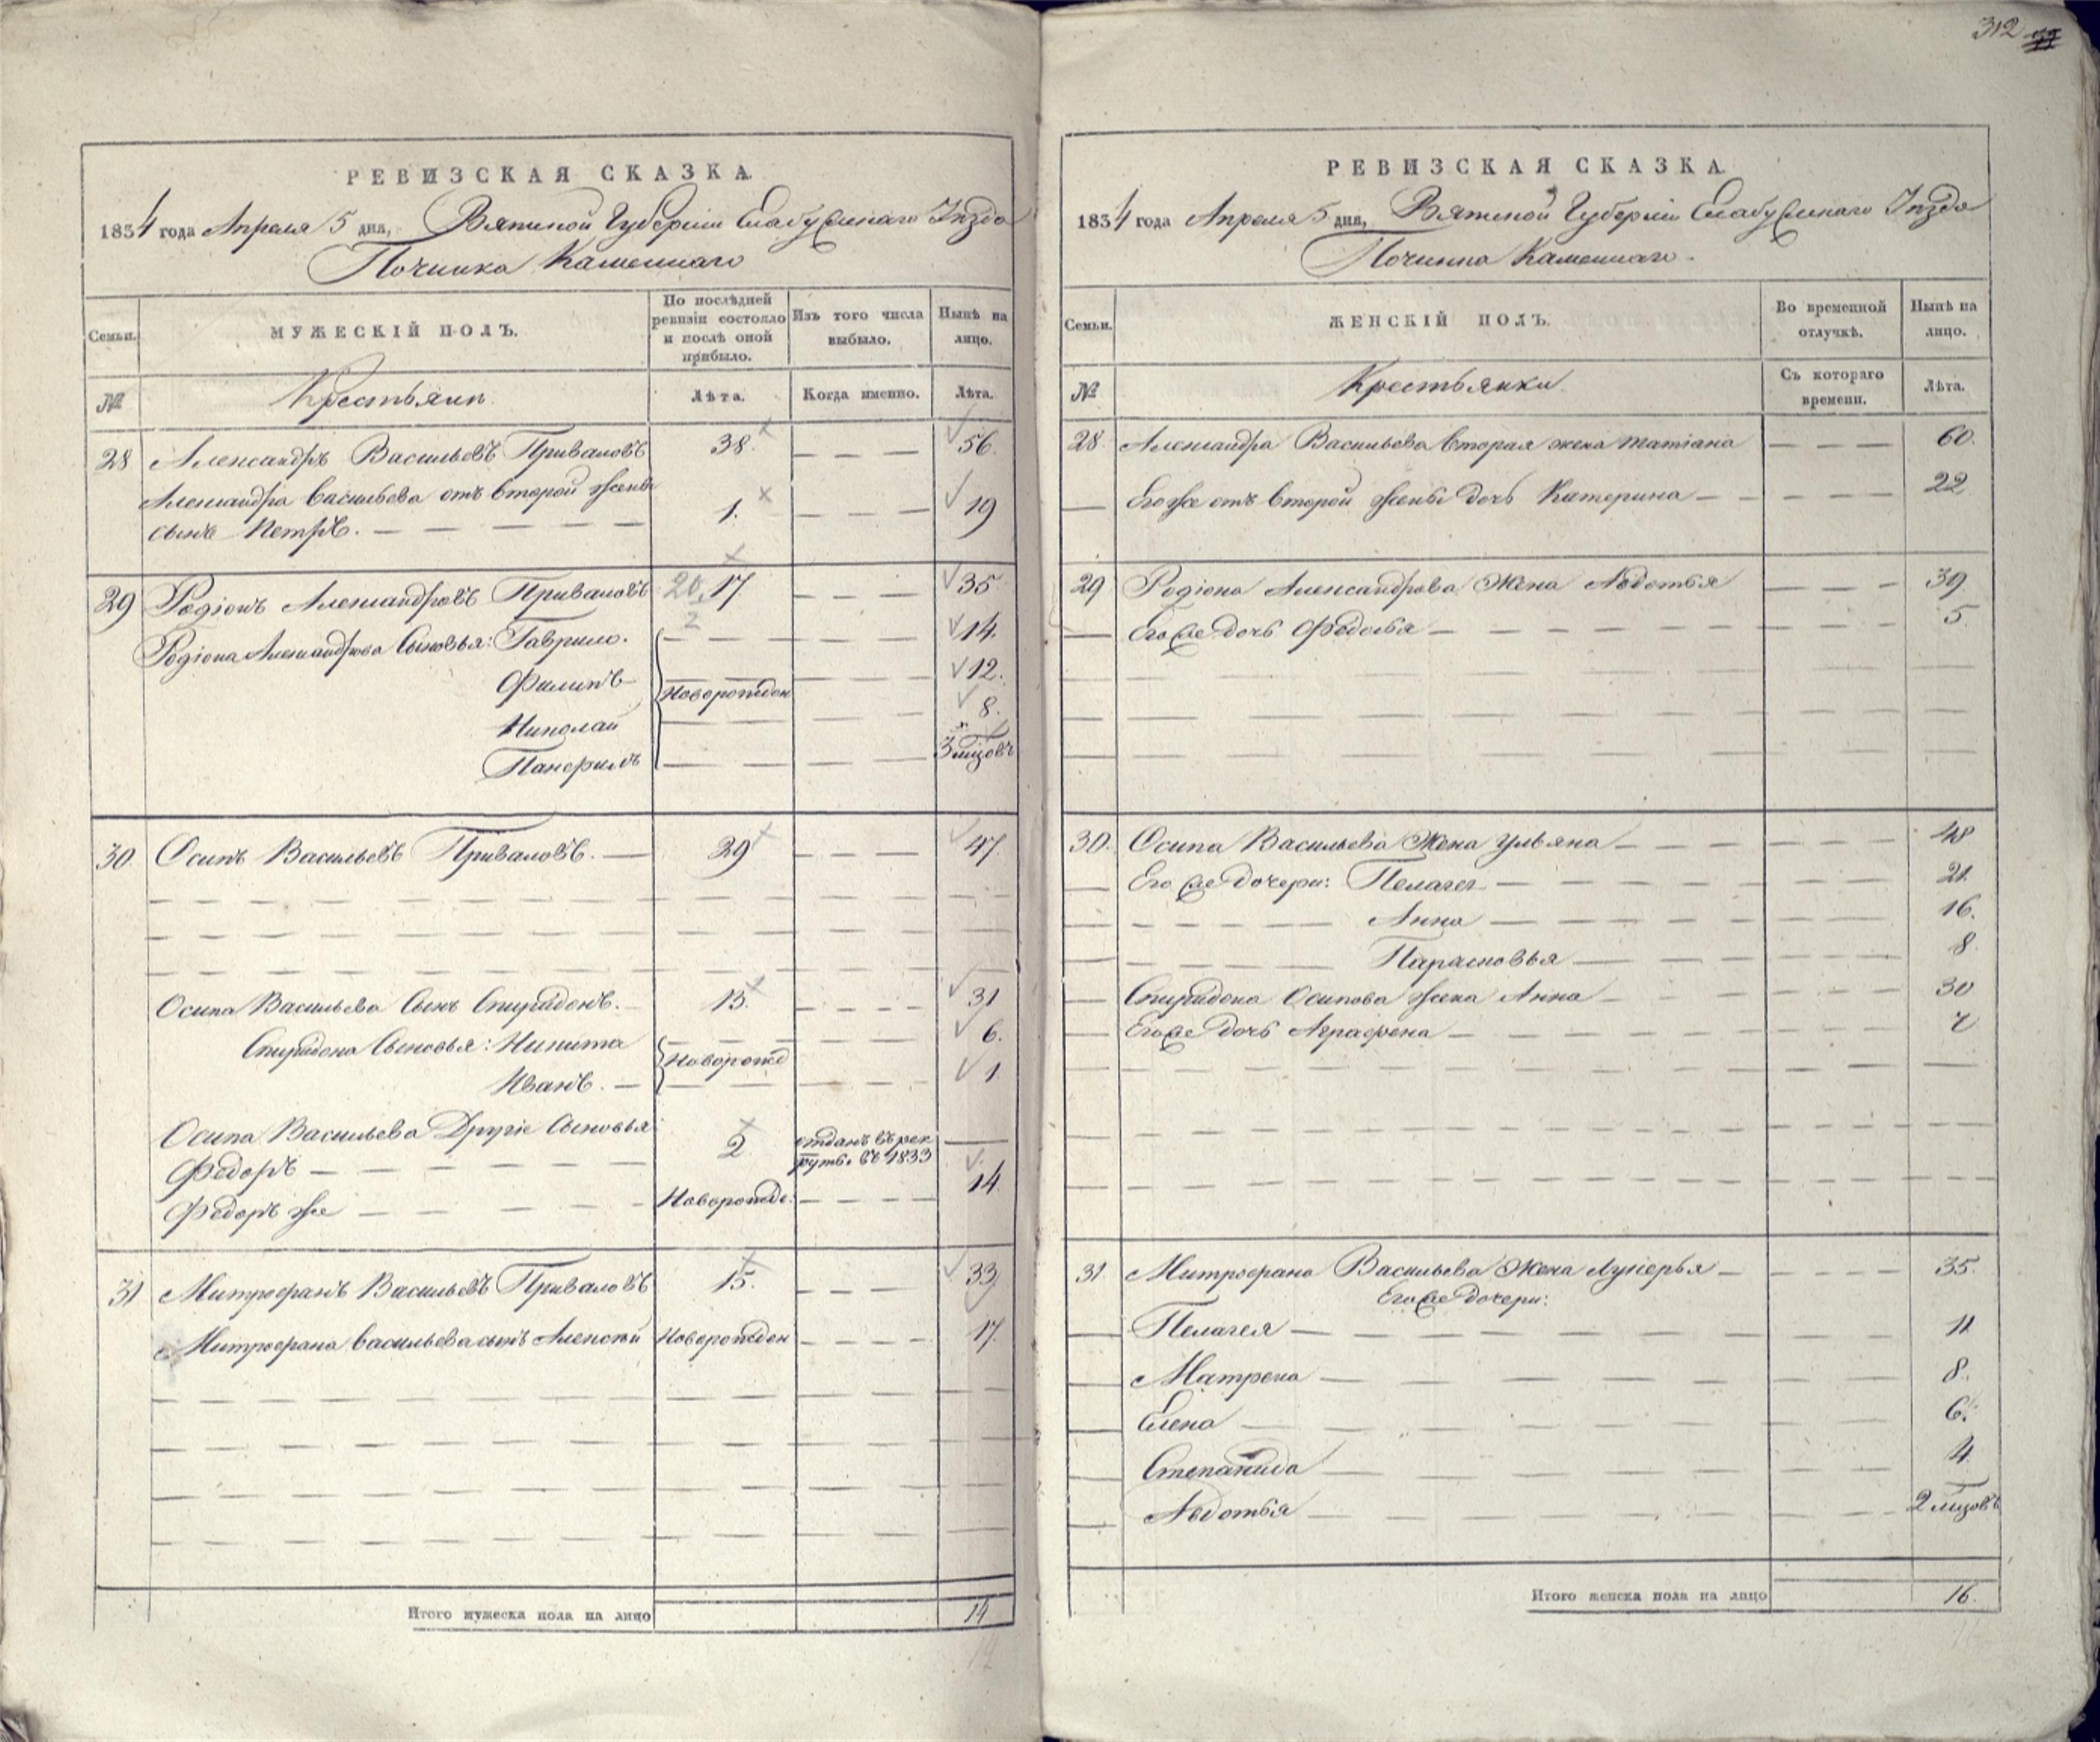 312
РЕВИЗСКАЯ СКАЗКА.
1834 года Апреля 5 дня, Вятской Губернии Елабужскаго Уѣзда
Починка Каменнаго
Семьи.
МУЖЕСКІЙ ПОЛЪ.
По послѣдней ревизіи состояло и послѣ оной прибыло.
Изъ того числа выбыло.
Нынѣ на лицо.
№
Крестьяне
Лѣта.
Когда именно.
Лѣта.
28 Александръ Васильевъ Приваловъ 38. — — — 56.
Александра Васильева отъ второй жены
сынъ Петръ. — — — — 1. — — — 19
29 Родіонъ Александровъ Приваловъ 20 17. — — — 35
2
Родіона Александрова Сыновья: Гаврило. — — — — 14.
Филипъ Новорожден — — — 12.
Николай — — — — 8.
Панфилъ — — — — 3 мцовъ
30. Осипъ Васильевъ Приваловъ. — 29 — — — 47
Осипа Васильева Сынъ Спиридонъ. 13. — — — — 31
Спиридона Сыновья: Никита — — — — 6.
Новорожд
Иванъ. — — — — — 1
Осипа Васильева Другіе Сыновья
Федоръ — — — — — 2 отданъ въ рек
руты въ 1833 —
Федоръ же — — — — Новорожде. — — — — 14
31 Митрофанъ Васильевъ Приваловъ 15. — — — 33
Митрофана Васильева сынъ Алексѣй Новорожден — — — — 17.
Итого мужеска пола на лицо 14
РЕВИЗСКАЯ СКАЗКА.
1834 года Апреля 5 дня, Вятской Губерніи Елабужскаго Уѣзда
Починка Каменнаго.
Семьи.
ЖЕНСКІЙ ПОЛЪ.
Во временной отлучкѣ.
Нынѣ на лицо.
№
Крестьянки
Съ котораго времени.
Лѣта.
28. Александра Васильева вторая жена Татіана — — — 60.
— Егоже отъ второй жены дочь Катерина — — — — 22
29 Родіона Александрова Жена Авдотья — — — 39.
— Его же дочь Федосья — — — — — — — — 5.
30. Осипа Васильева Жена Ульяна — — — — — — 48
— Его же дочери: Пелагея — — — — — — — 21.
— Анна — — — — — — — 16.
— Парасковья — — — — — — 8.
— Спиридона Осипова жена Анна — — — — — 30
— Его же дочь Аграфена — — — — — — — —
31 Митрофана Васильева Жена Лукерья — — — — 35.
Его же дочери:
— Пелагея — — — — — — — — 11
— Матрена — — — — — — — — 8.
Елена — — — — — — — — 6.
— Степанида — — — — — — — 4
— Авдотья — — — — — — — — 2 мцовъ
Итого женска пола на лицо 16.